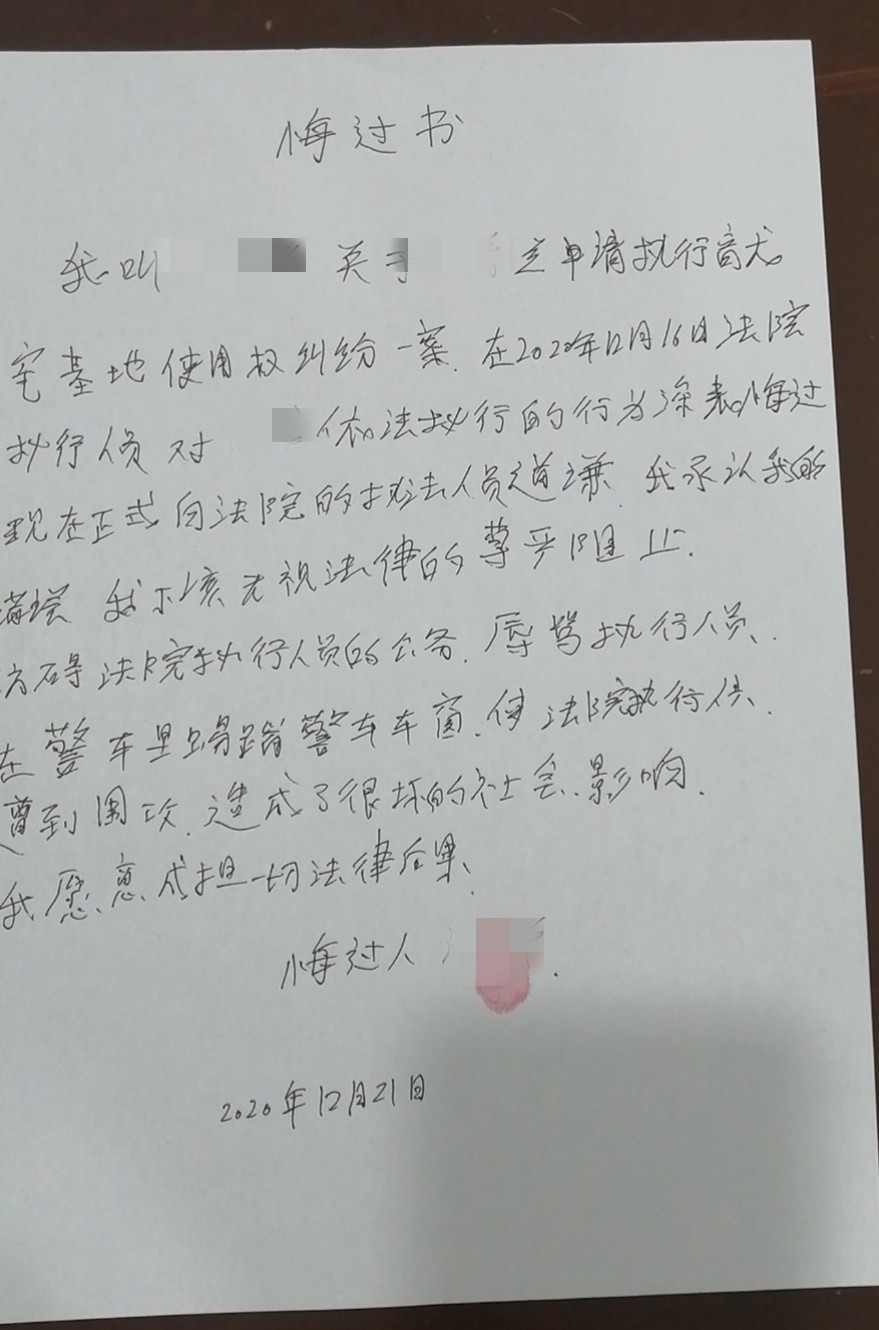 悔过书
我叫 关于 申请执行
宅基地使用权纠纷一案.在2020年12月16日法院
执行人员对 依法执行的行为深表悔过
现在正式向法院的执法人员道谦.我承认我的
我不该无视法律的尊严阻止.
方碍法院执行人员的公务.辱骂执行人员.
在警车里踢踹警车车窗.使法院执行
遭到围攻.造成了很坏的社会.影响.
我愿意成担一切法律后果.
悔过人
2020年12月21日